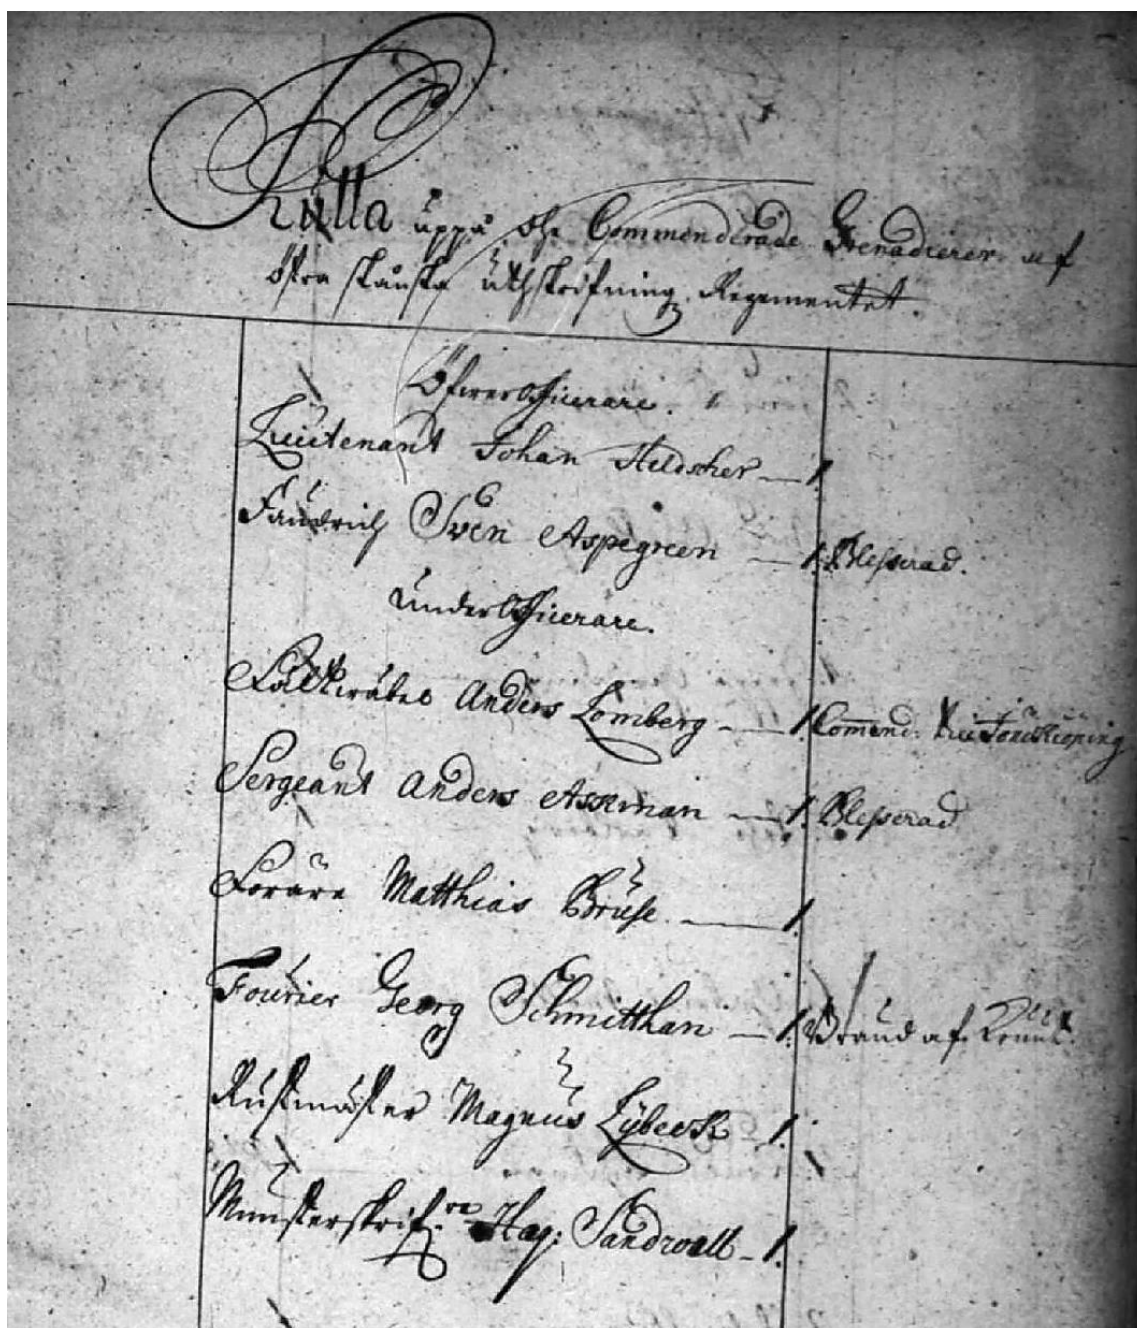 Rulla uppå the Commenderade Grenadierer af
östra skånska uthskrifning Regementet.
Öfwer Officerare.
Lieutenant Johan Heldscher — 1.
Faudrich Sven Aspegreen — 1. Blesserad.
under Officerare.
Anders Lomberg — 1 Comend:
Sergeant Anders Assman — 1. Blesserad
Förare Matthias Bruse — 1.
Fourier Georg Schmitthan — 1. Brand af
Rustmäster Magnus Lybeck 1.
Munsterskrif:re Hag: Sandwall - 1.